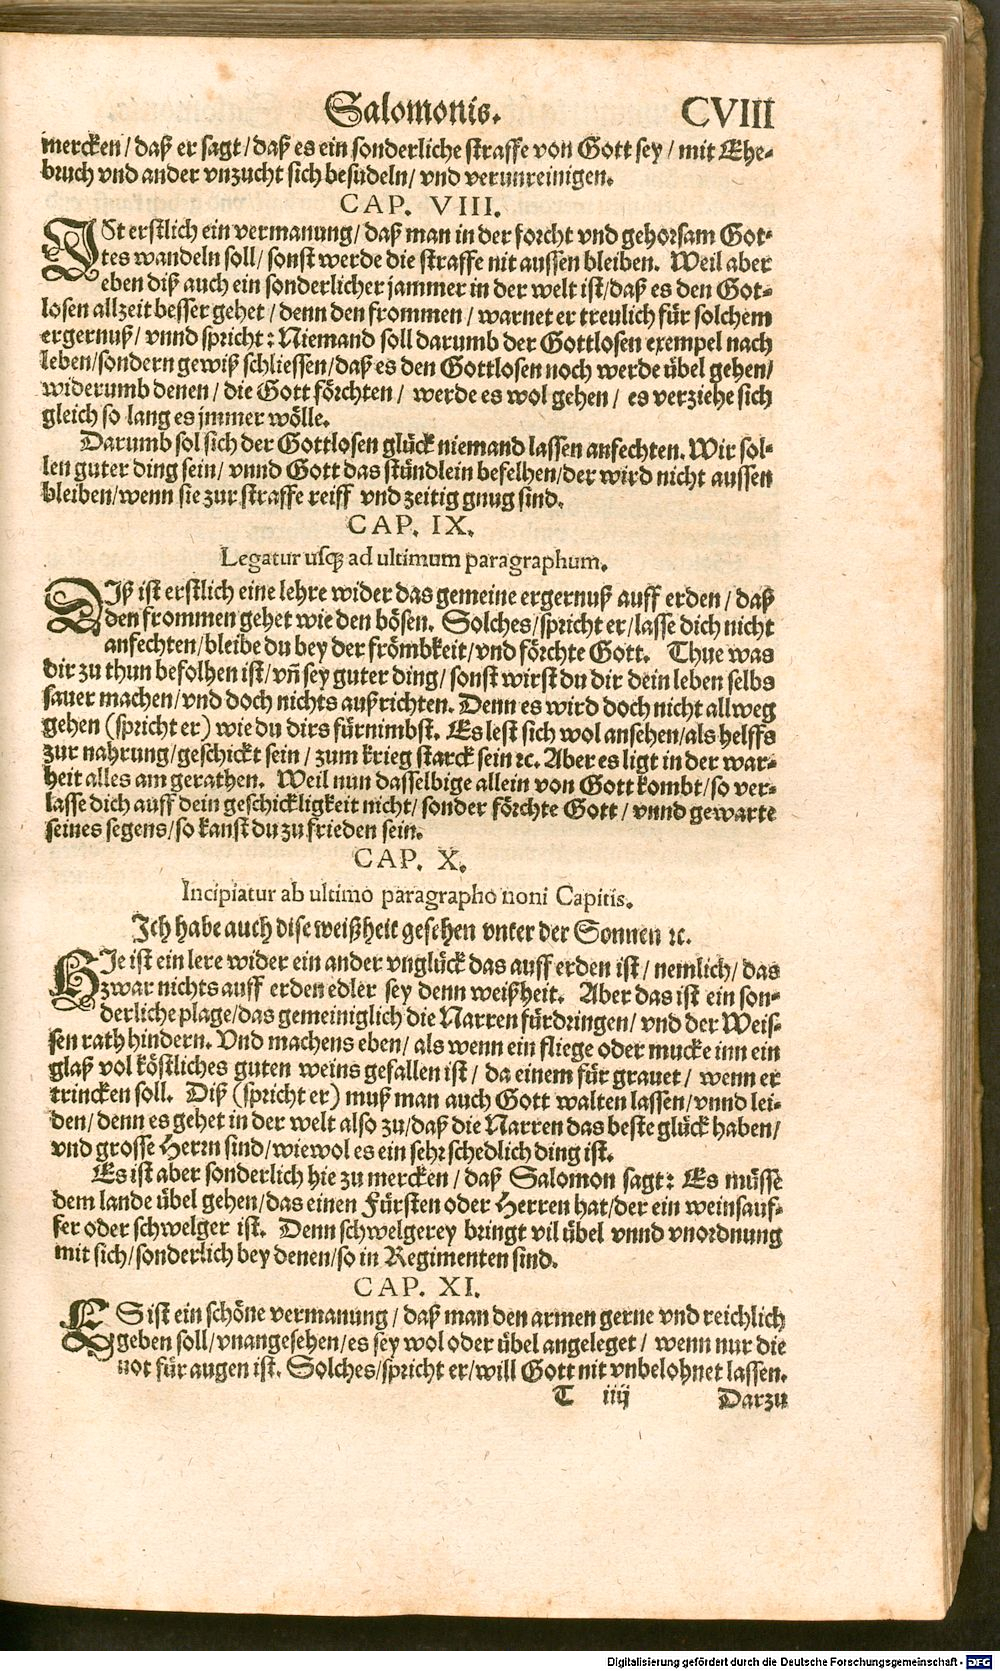 Salomonis. CVIII
mercken / daß er sagt / daß es ein sonderliche straffe von Gott sey / mit Ehe-
bruch vnd ander vnzucht sich besudeln / vnd verunreinigen.
CAP. VIII.
ISt erstlich ein vermanung / daß man in der forcht vnd gehorsam Got-
tes wandeln soll / sonst werde die straffe nit aussen bleiben. Weil aber
eben diß auch ein sonderlicher jammer in der welt ist / daß es den Got-
losen allzeit besser gehet / denn den frommen / warnet er treulich für solchem
ergernuß / vnnd spricht: Niemand soll darumb der Gottlosen exempel nach
leben / sondern gewiß schliessen / daß es den Gottlosen noch werde übel gehen /
widerumb denen / die Gott förchten / werde es wol gehen / es verziehe sich
gleich so lang es jmmer wölle.
Darumb sol sich der Gottlosen glück niemand lassen anfechten. Wir sol-
len guter ding sein / vnnd Gott das stündlein befelhen / der wird nicht aussen
bleiben / wenn sie zur straffe reiff vnd zeitig gnug sind.
CAP. IX.
Legatur usq; ad ultimum paragraphum.
DIß ist erstlich eine lehre wider das gemeine ergernuß auff erden / daß
den frommen gehet wie den bösen. Solches / spricht er / lasse dich nicht
anfechten / bleibe du bey der frömbkeit / vnd förchte Gott. Thue was
dir zu thun befolhen ist / vñ sey guter ding / sonst wirst du dir dein leben selbs
sauer machen / vnd doch nichts außrichten. Denn es wird doch nicht allweg
gehen (spricht er) wie du dirs fürnimbst. Es lest sich wol ansehen / als helffs
zur nahrung / geschickt sein / zum krieg starck sein ꝛc. Aber es ligt in der war-
heit alles am gerathen. Weil nun dasselbige allein von Gott kombt / so ver-
lasse dich auff dein geschickligkeit nicht / sonder förchte Gott / vnnd gewarte
seines segens / so kanst du zu frieden sein.
CAP. X.
Incipiatur ab ultimo paragrapho noni Capitis.
Ich habe auch dise weißheit gesehen vnter der Sonnen ꝛc.
HIe ist ein lere wider ein ander vnglück das auff erden ist / nemlich / das
zwar nichts auff erden edler sey denn weißheit. Aber das ist ein son-
derliche plage / das gemeiniglich die Narren fürdringen / vnd der Weis-
sen rath hindern. Vnd machens eben / als wenn ein fliege oder mucke inn ein
glaß vol köstliches guten weins gefallen ist / da einem für grauet / wenn er
trincken soll. Diß (spricht er) muß man auch Gott walten lassen / vnnd lei-
den / denn es gehet in der welt also zu / daß die Narren das beste glück haben /
vnd grosse Herrn sind / wiewol es ein sehr schedlich ding ist.
Es ist aber sonderlich hie zu mercken / daß Salomon sagt: Es müsse
dem lande übel gehen / das einen Fürsten oder Herren hat / der ein weinsauf-
fer oder schwelger ist. Denn schwelgerey bringt vil übel vnnd vnordnung
mit sich / sonderlich bey denen / so in Regimenten sind.
CAP. XI.
ES ist ein schöne vermanung / daß man den armen gerne vnd reichlich
geben soll / vnangesehen / es sey wol oder übel angeleget / wenn nur die
not für augen ist. Solches / spricht er / will Gott nit vnbelohnet lassen.
T iiij Darzu
Digitalisierung gefördert durch die Deutsche Forschungsgemeinschaft - DFG